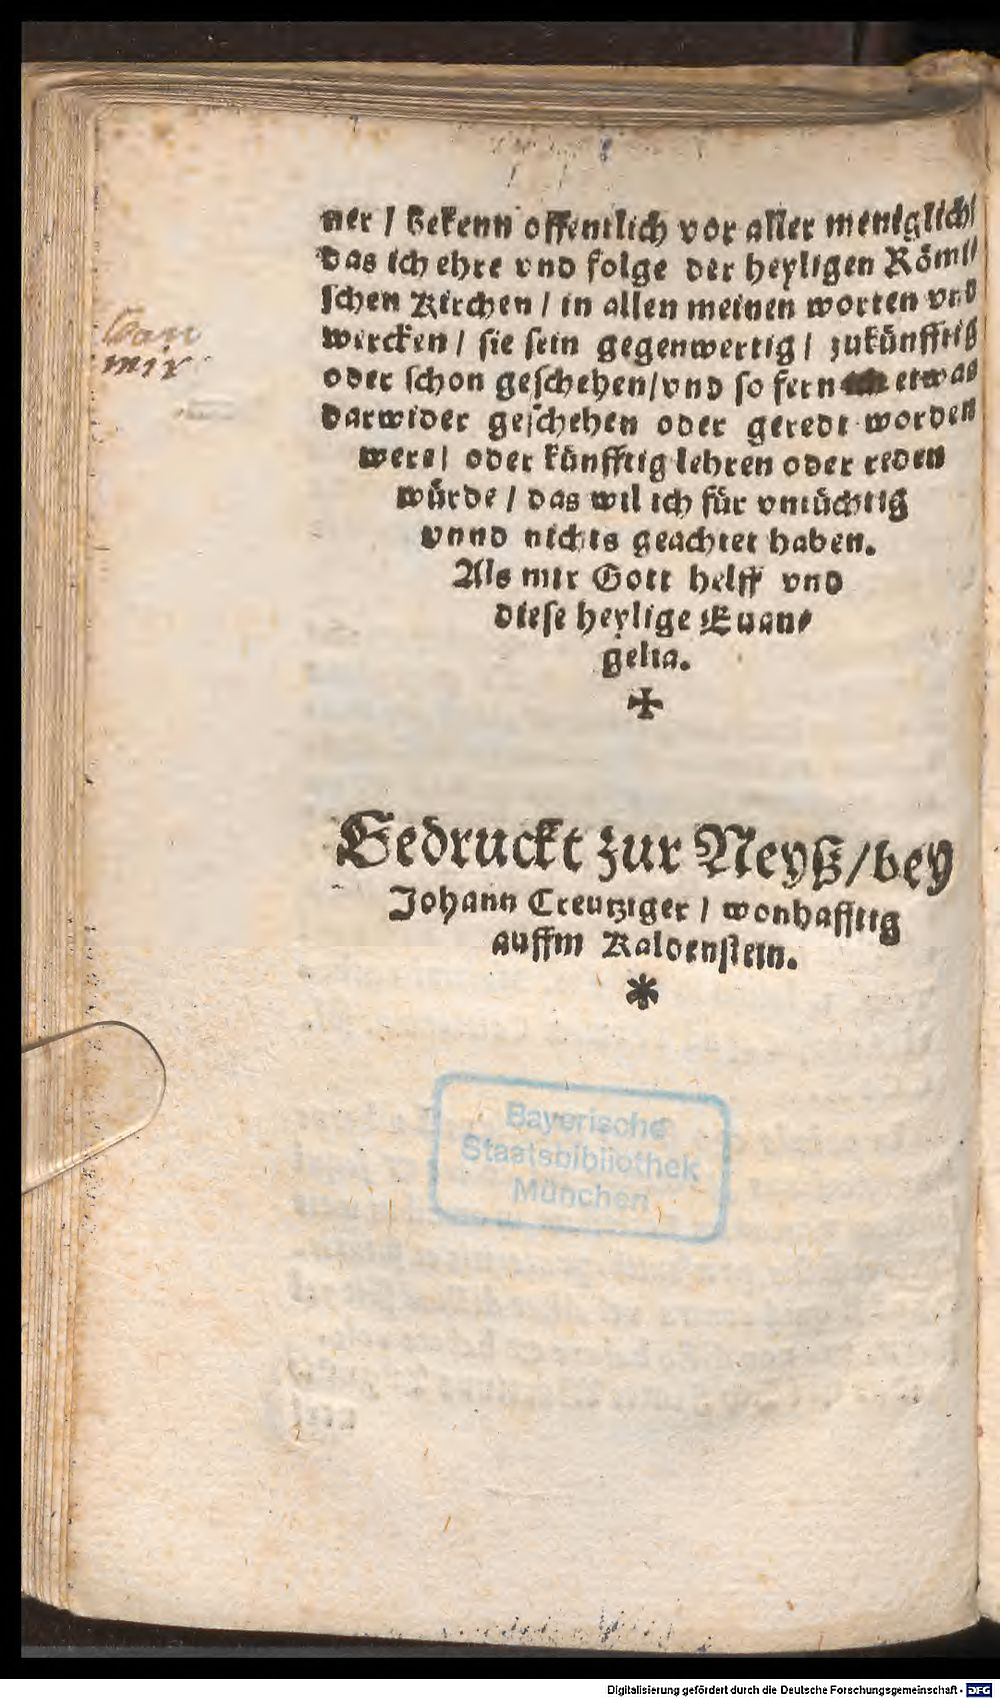 ner / Bekenn offentlich vor aller meniglich /
Das ich ehre vnd folge der heyligen Römi⸗
schen Kirchen / in allen meinen worten vnd
wercken / sie sein gegenwertig / zukünfftig
oder schon geschehen / vnd so fern etwas
darwider geschehen oder geredt worden
were / oder künfftig lehren oder reden
würde / das wil ich für vntüchtig
vnnd nichts geachtet haben.
Als mir Gott helff vnd
diese heylige Euan⸗
gelia.
✠
mir
Gedruckt zur Neyß / bey
Johann Creutziger / wonhafftig
auffm Kaldenstein.
*
Bayerische
Staatsbibliothek
München
Digitalisierung gefördert durch die Deutsche Forschungsgemeinschaft - DFG